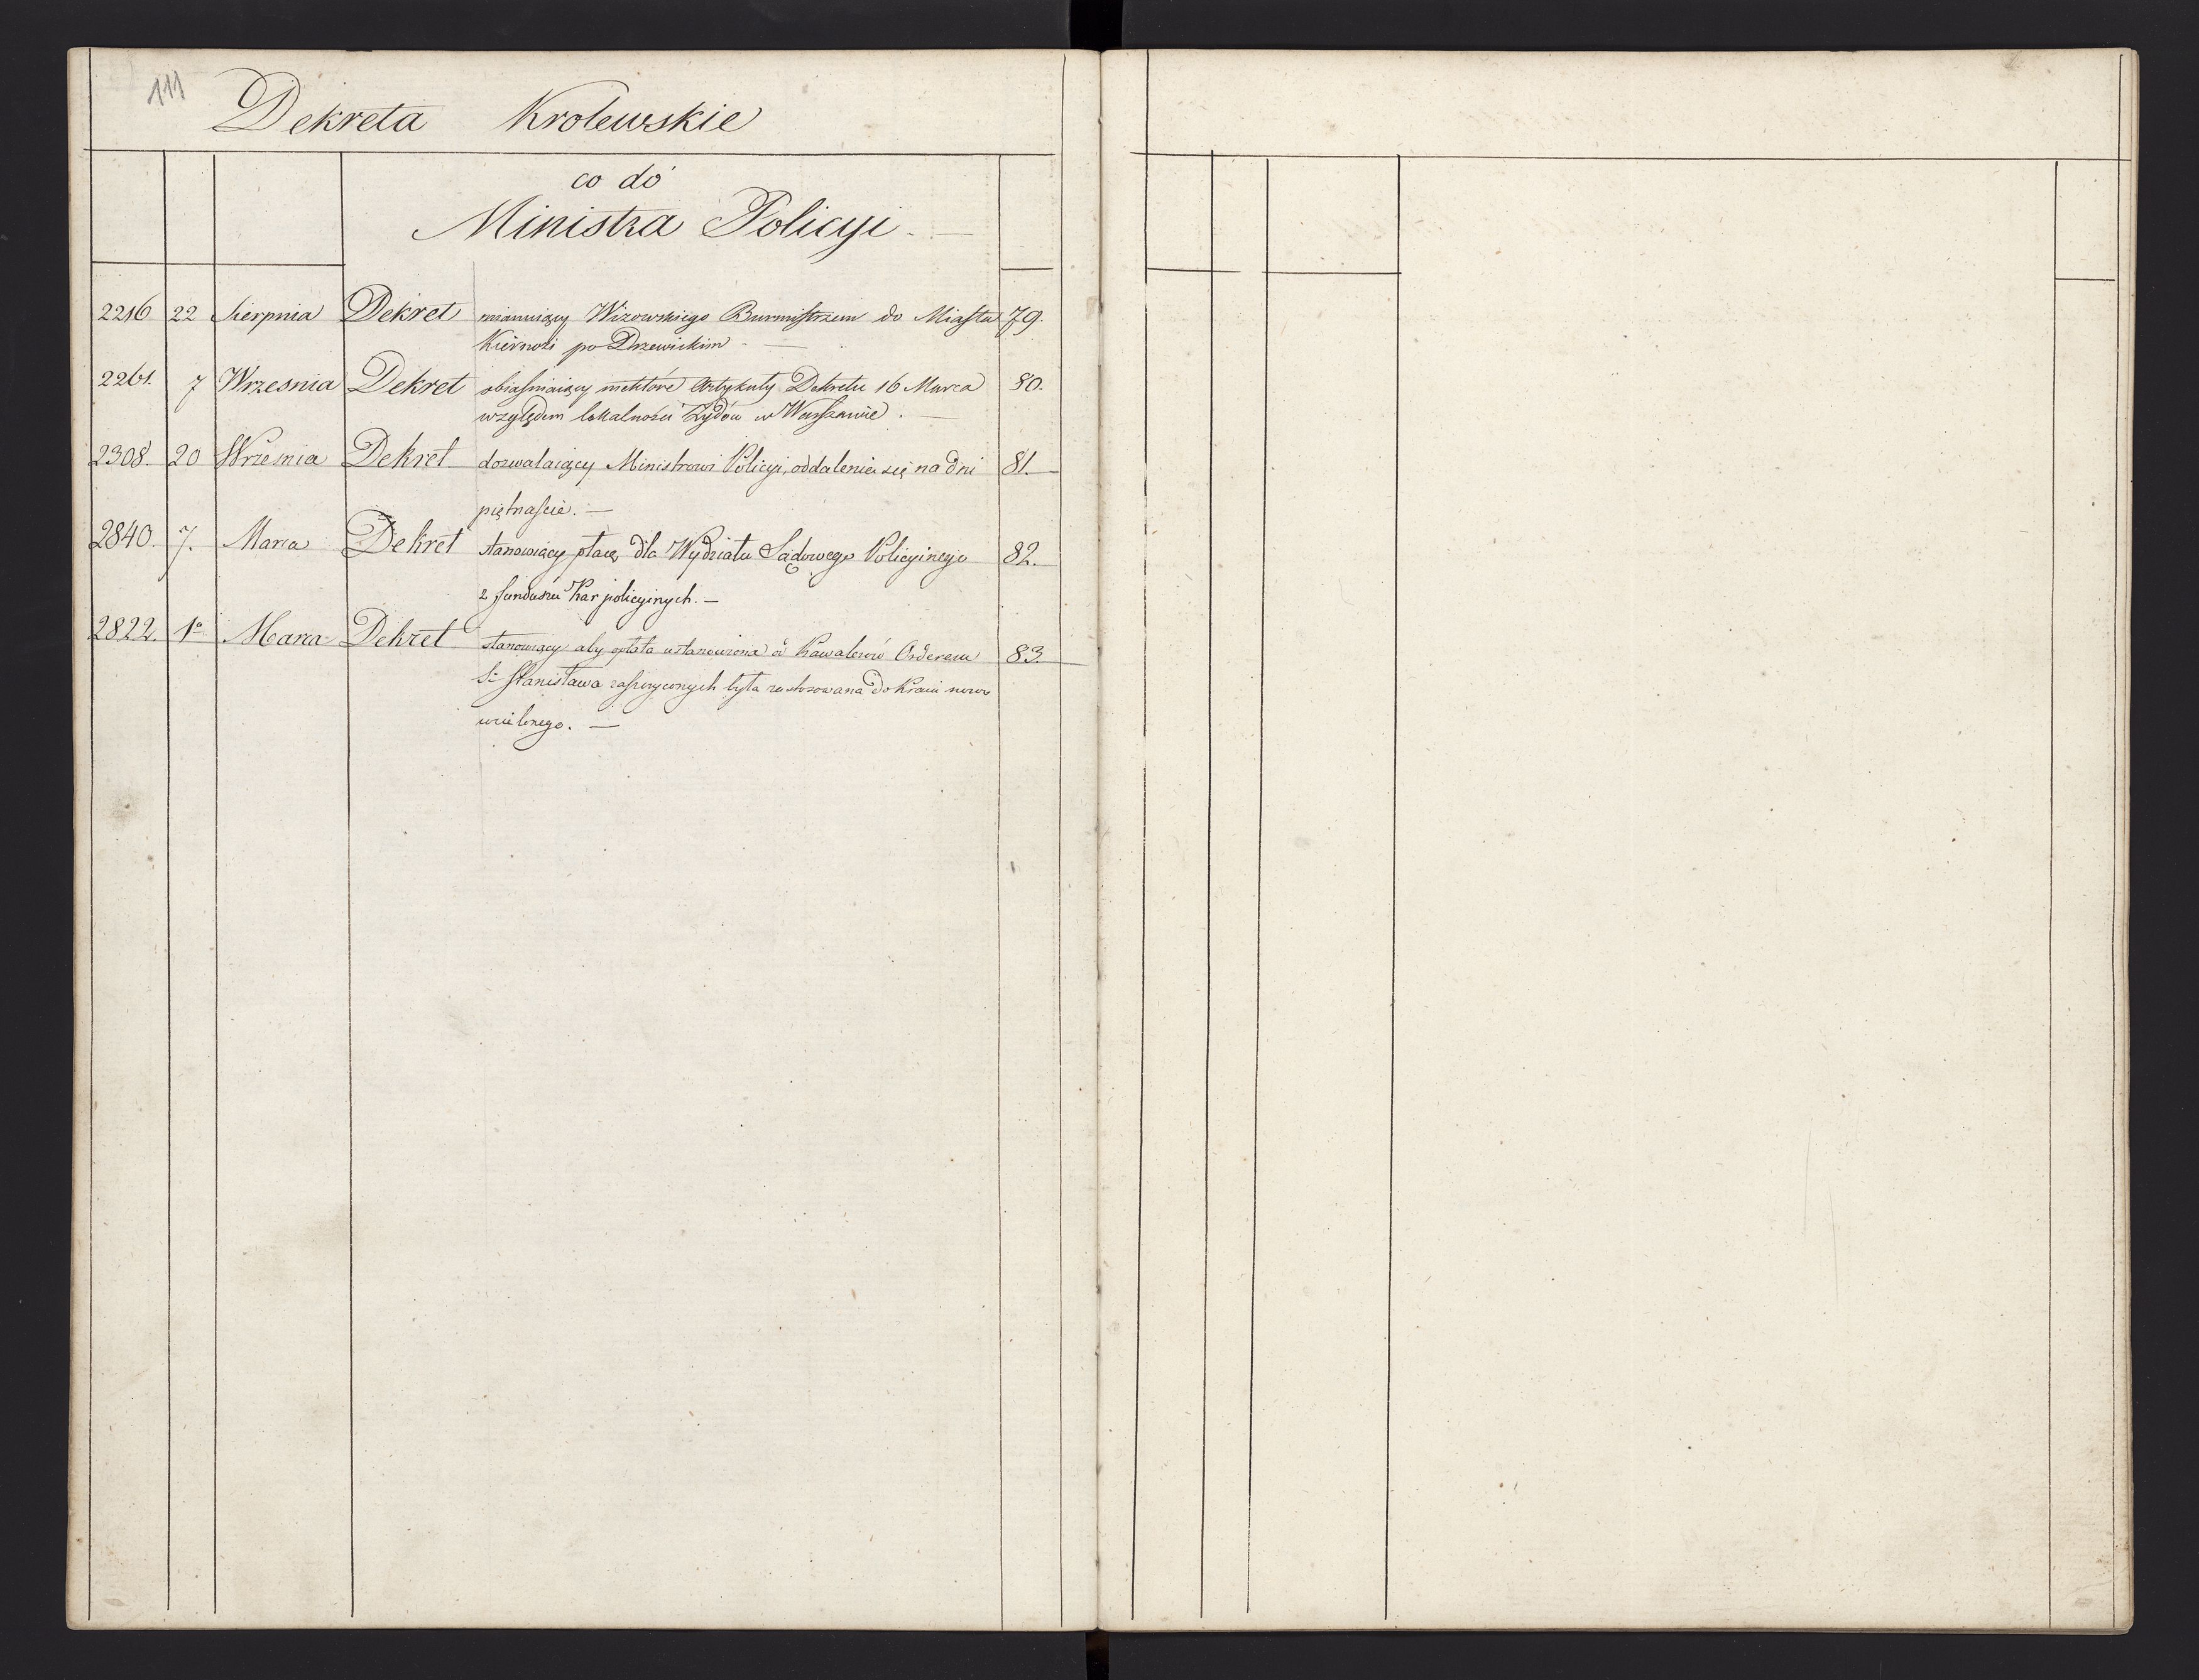 111
Dekreta Krolewskie
co do
Ministra Policyi. —
2216 22 Sierpnia Dekret mianuiący Wizowskiego Burmistrzem do Miasta 79.
Kiernozi po Drzewickim. —
2261. 7 Wrzesnia Dekret obiaśniaiący niektóre Artykuły Dekretu 16 Marca 80.
względem lokalności Żydów w Warszawie. —
2308. 20 Września Dekret dozwalaiący Ministrowi Policyi, oddalenia się na dni 81. —
piętnaście. —
2840. 7. Marca Dekret stanowiący płacę dla Wydziału Sądowego Policyinego 82. —
z funduszu Kar policyinych. —
2822. 1º Marca Dekret stanowiący aby opłata ustanowiona od Kawalerów Orderem 83. —
Sº Stanisława zaszczyconych była zastosowana do Kraiu nowo
wcielonego. —